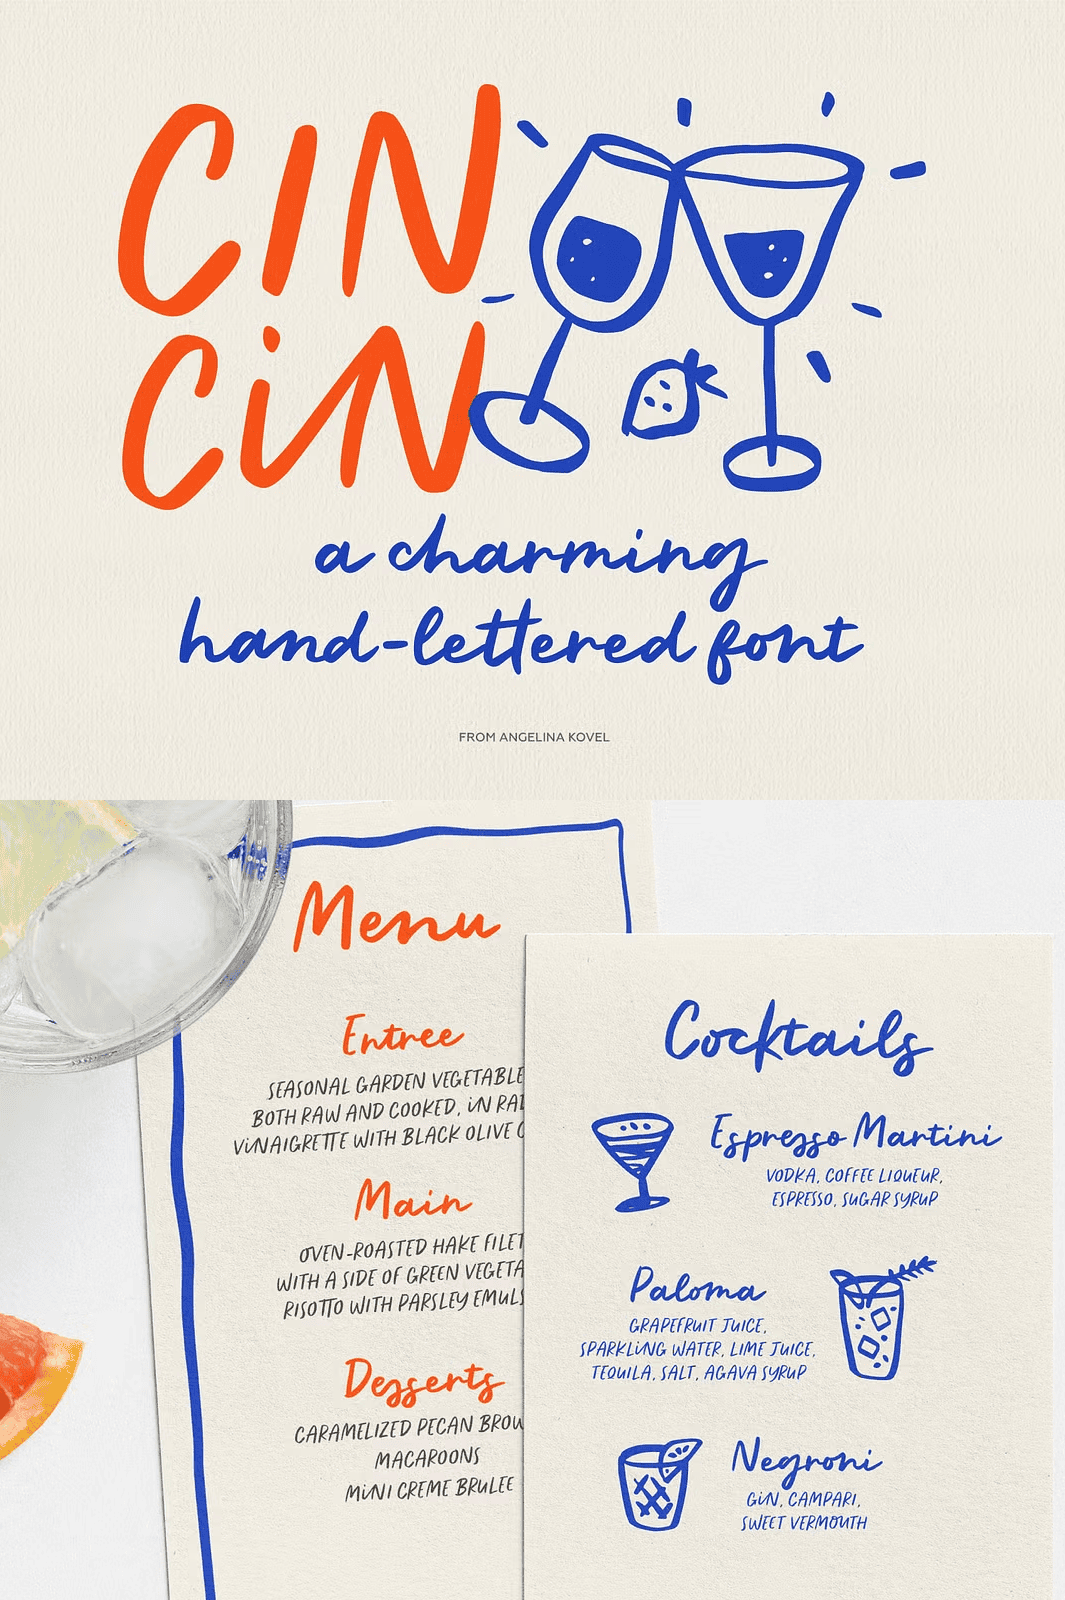 CIN
CiN
a charming
hand-lettered font
FROM ANGELINA KOVEL
Menu
Entree
SEASONAL GARDEN VEGETABLE
BOTH RAW AND COOKED, iN
ViNAIGRETTE WITH BLACK OLIVE
Main
OVEN-ROASTED HAKE FILET
WITH A SIDE OF GREEN
RISOTTO WITH PARSLEY
Desserts
CARAMELIZED PECAN
MACAROONS
MiNI CREME BRULEE
Cocktails
Espresso Martini
VODKA, COFFEE LIQUEUR,
ESPRESSO, SUGAR SYRUP
Paloma
GRAPEFRUIT JUICE,
SPARKLiNG WATER, LIME JUICE,
TEQUILA, SALT, AGAVA SYRUP
Negroni
GiN, CAMPARI,
SWEET VERMOUTH